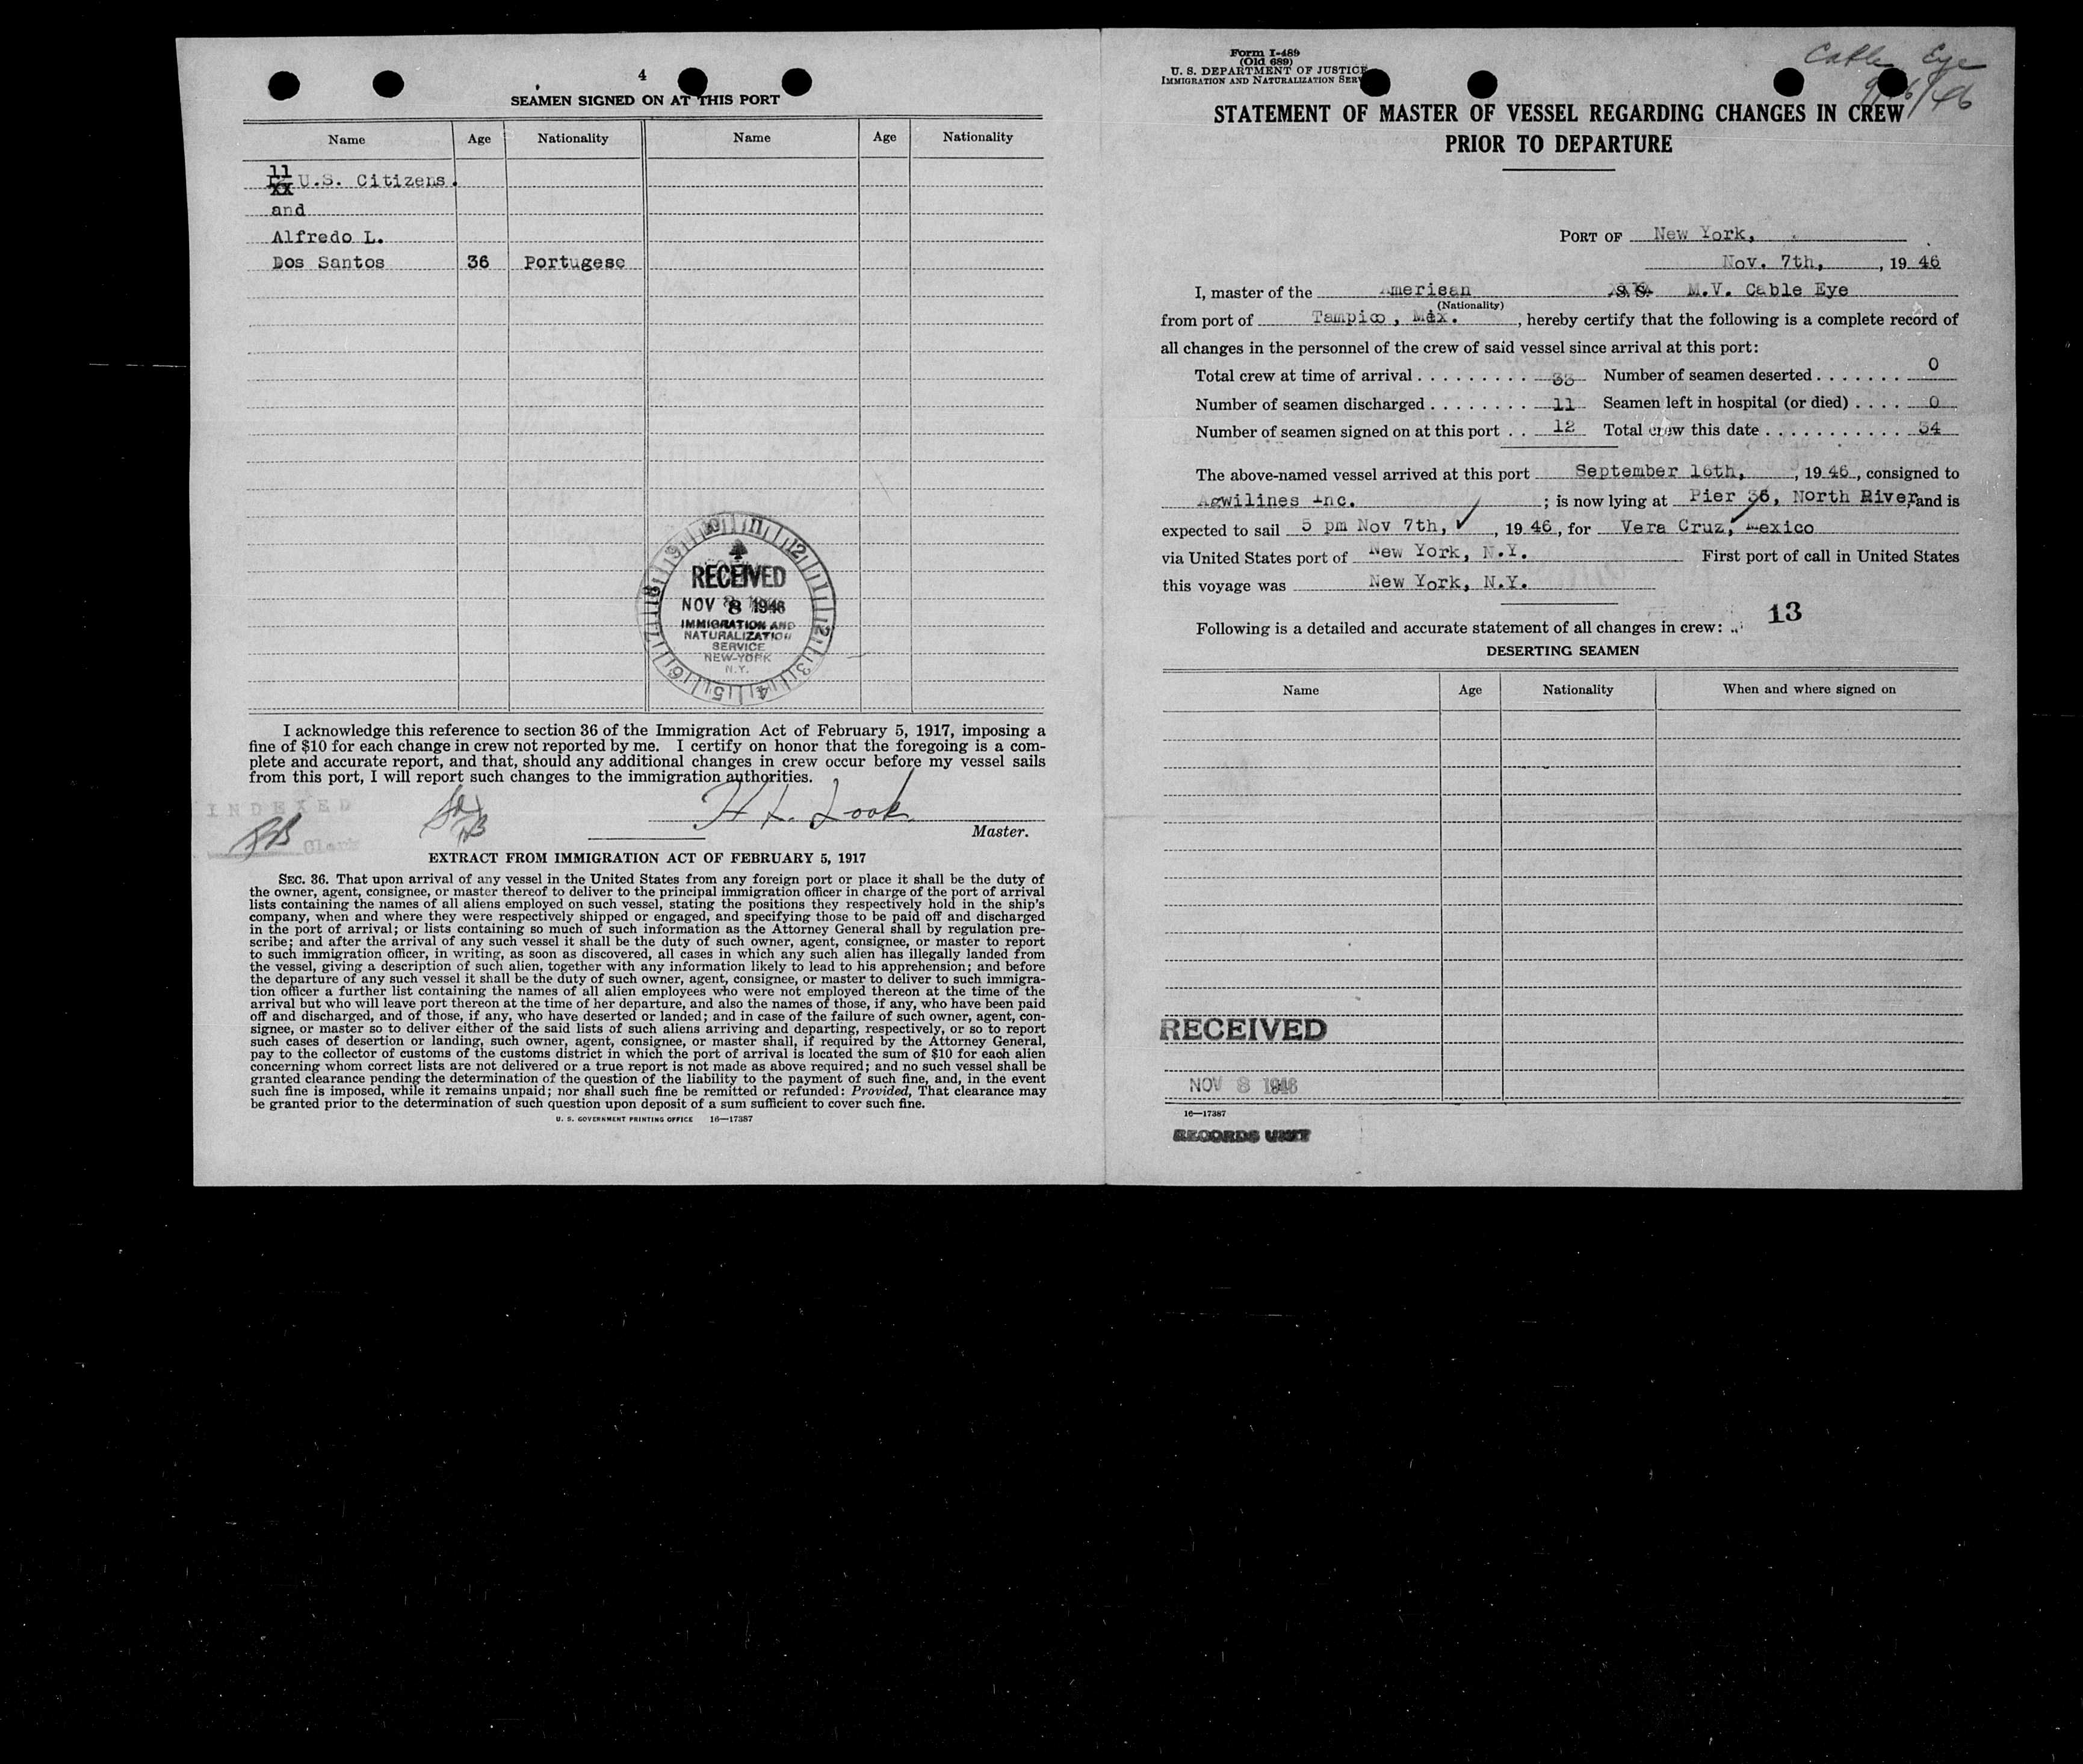 4
SEAMEN SIGNED ON AT THIS PORT
Name Age Nationality Name Age Nationality
11
xx U.S. Citizens.
and
Alfredo L.
Dos Santos 36 Portugese
10 11 12 1 2 3 4 5 6 7 8 9
RECEIVED
NOV 8 1946
IMMIGRATION AND
NATURALIZATION
SERVICE
NEW-YORK
N.Y.
I acknowledge this reference to section 36 of the Immigration Act of February 5, 1917, imposing a
fine of $10 for each change in crew not reported by me. I certify on honor that the foregoing is a com-
plete and accurate report, and that, should any additional changes in crew occur before my vessel sails
from this port, I will report such changes to the immigration authorities.
INDEXED
Clerk
H. L. Look
Master.
EXTRACT FROM IMMIGRATION ACT OF FEBRUARY 5, 1917
SEC. 36. That upon arrival of any vessel in the United States from any foreign port or place it shall be the duty of
the owner, agent, consignee, or master thereof to deliver to the principal immigration officer in charge of the port of arrival
lists containing the names of all aliens employed on such vessel, stating the positions they respectively hold in the ship's
company, when and where they were respectively shipped or engaged, and specifying those to be paid off and discharged
in the port of arrival; or lists containing so much of such information as the Attorney General shall by regulation pre-
scribe; and after the arrival of any such vessel it shall be the duty of such owner, agent, consignee, or master to report
to such immigration officer, in writing, as soon as discovered, all cases in which any such alien has illegally landed from
the vessel, giving a description of such alien, together with any information likely to lead to his apprehension; and before
the departure of any such vessel it shall be the duty of such owner, agent, consignee, or master to deliver to such immigra-
tion officer a further list containing the names of all alien employees who were not employed thereon at the time of the
arrival but who will leave port thereon at the time of her departure, and also the names of those, if any, who have been paid
off and discharged, and of those, if any, who have deserted or landed; and in case of the failure of such owner, agent, con-
signee, or master so to deliver either of the said lists of such aliens arriving and departing, respectively, or so to report
such cases of desertion or landing, such owner, agent, consignee, or master shall, if required by the Attorney General,
pay to the collector of customs of the customs district in which the port of arrival is located the sum of $10 for each alien
concerning whom correct lists are not delivered or a true report is not made as above required; and no such vessel shall be
granted clearance pending the determination of the question of the liability to the payment of such fine, and, in the event
such fine is imposed, while it remains unpaid; nor shall such fine be remitted or refunded: Provided, That clearance may
be granted prior to the determination of such question upon deposit of a sum sufficient to cover such fine.
U. S. GOVERNMENT PRINTING OFFICE 16—17387
Form I-489
(Old 689)
U. S. DEPARTMENT OF JUSTICE
IMMIGRATION AND NATURALIZATION SERV
Cable Eye
9/16/46
STATEMENT OF MASTER OF VESSEL REGARDING CHANGES IN CREW
PRIOR TO DEPARTURE
PORT OF New York,
Nov. 7th, , 19 46
I, master of the American M.V. Cable Eye
(Nationality)
from port of Tampico, Mex. , hereby certify that the following is a complete record of
all changes in the personnel of the crew of said vessel since arrival at this port:
Total crew at time of arrival . . . . . . . . . 33 Number of seamen deserted . . . . . . . 0
Number of seamen discharged . . . . . . . . 11 Seamen left in hospital (or died) . . . . 0
Number of seamen signed on at this port . . 12 Total crew this date . . . . . . . . . . . . 34
The above-named vessel arrived at this port September 16th, , 19 46 , consigned to
Agwilines Inc. ; is now lying at Pier 36, North River, and is
expected to sail 5 pm Nov 7th, , 19 46 , for Vera Cruz, Mexico
via United States port of New York, N.Y. First port of call in United States
this voyage was New York, N.Y.
13
Following is a detailed and accurate statement of all changes in crew:
DESERTING SEAMEN
Name Age Nationality When and where signed on
RECEIVED
NOV 8 1946
16—17387
RECORDS UNIT